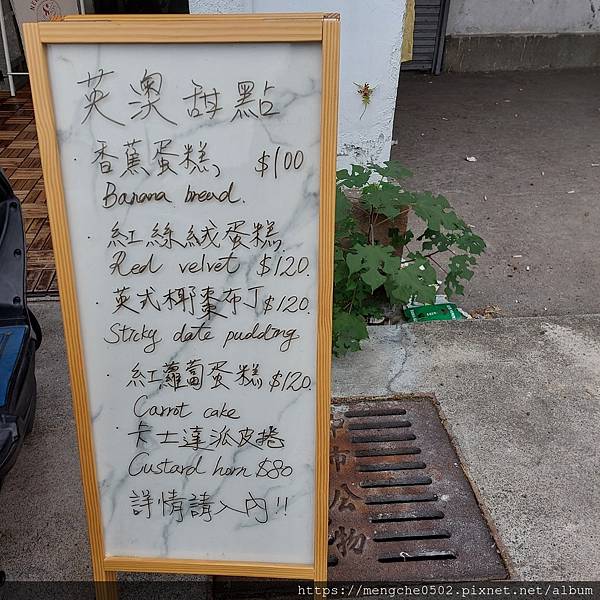 英澳甜點
· 香蕉蛋糕, $100
Banana bread.
· 紅絲絨蛋糕
Red velvet $120.
· 英式椰棗布丁 $120.
Sticky date pudding
· 紅蘿蔔蛋糕 $120.
Carrot cake
· 卡士達派皮捲
Custard horn $80
詳情請入內!!
市
公
物
https://mengche0502.pixnet.net/album